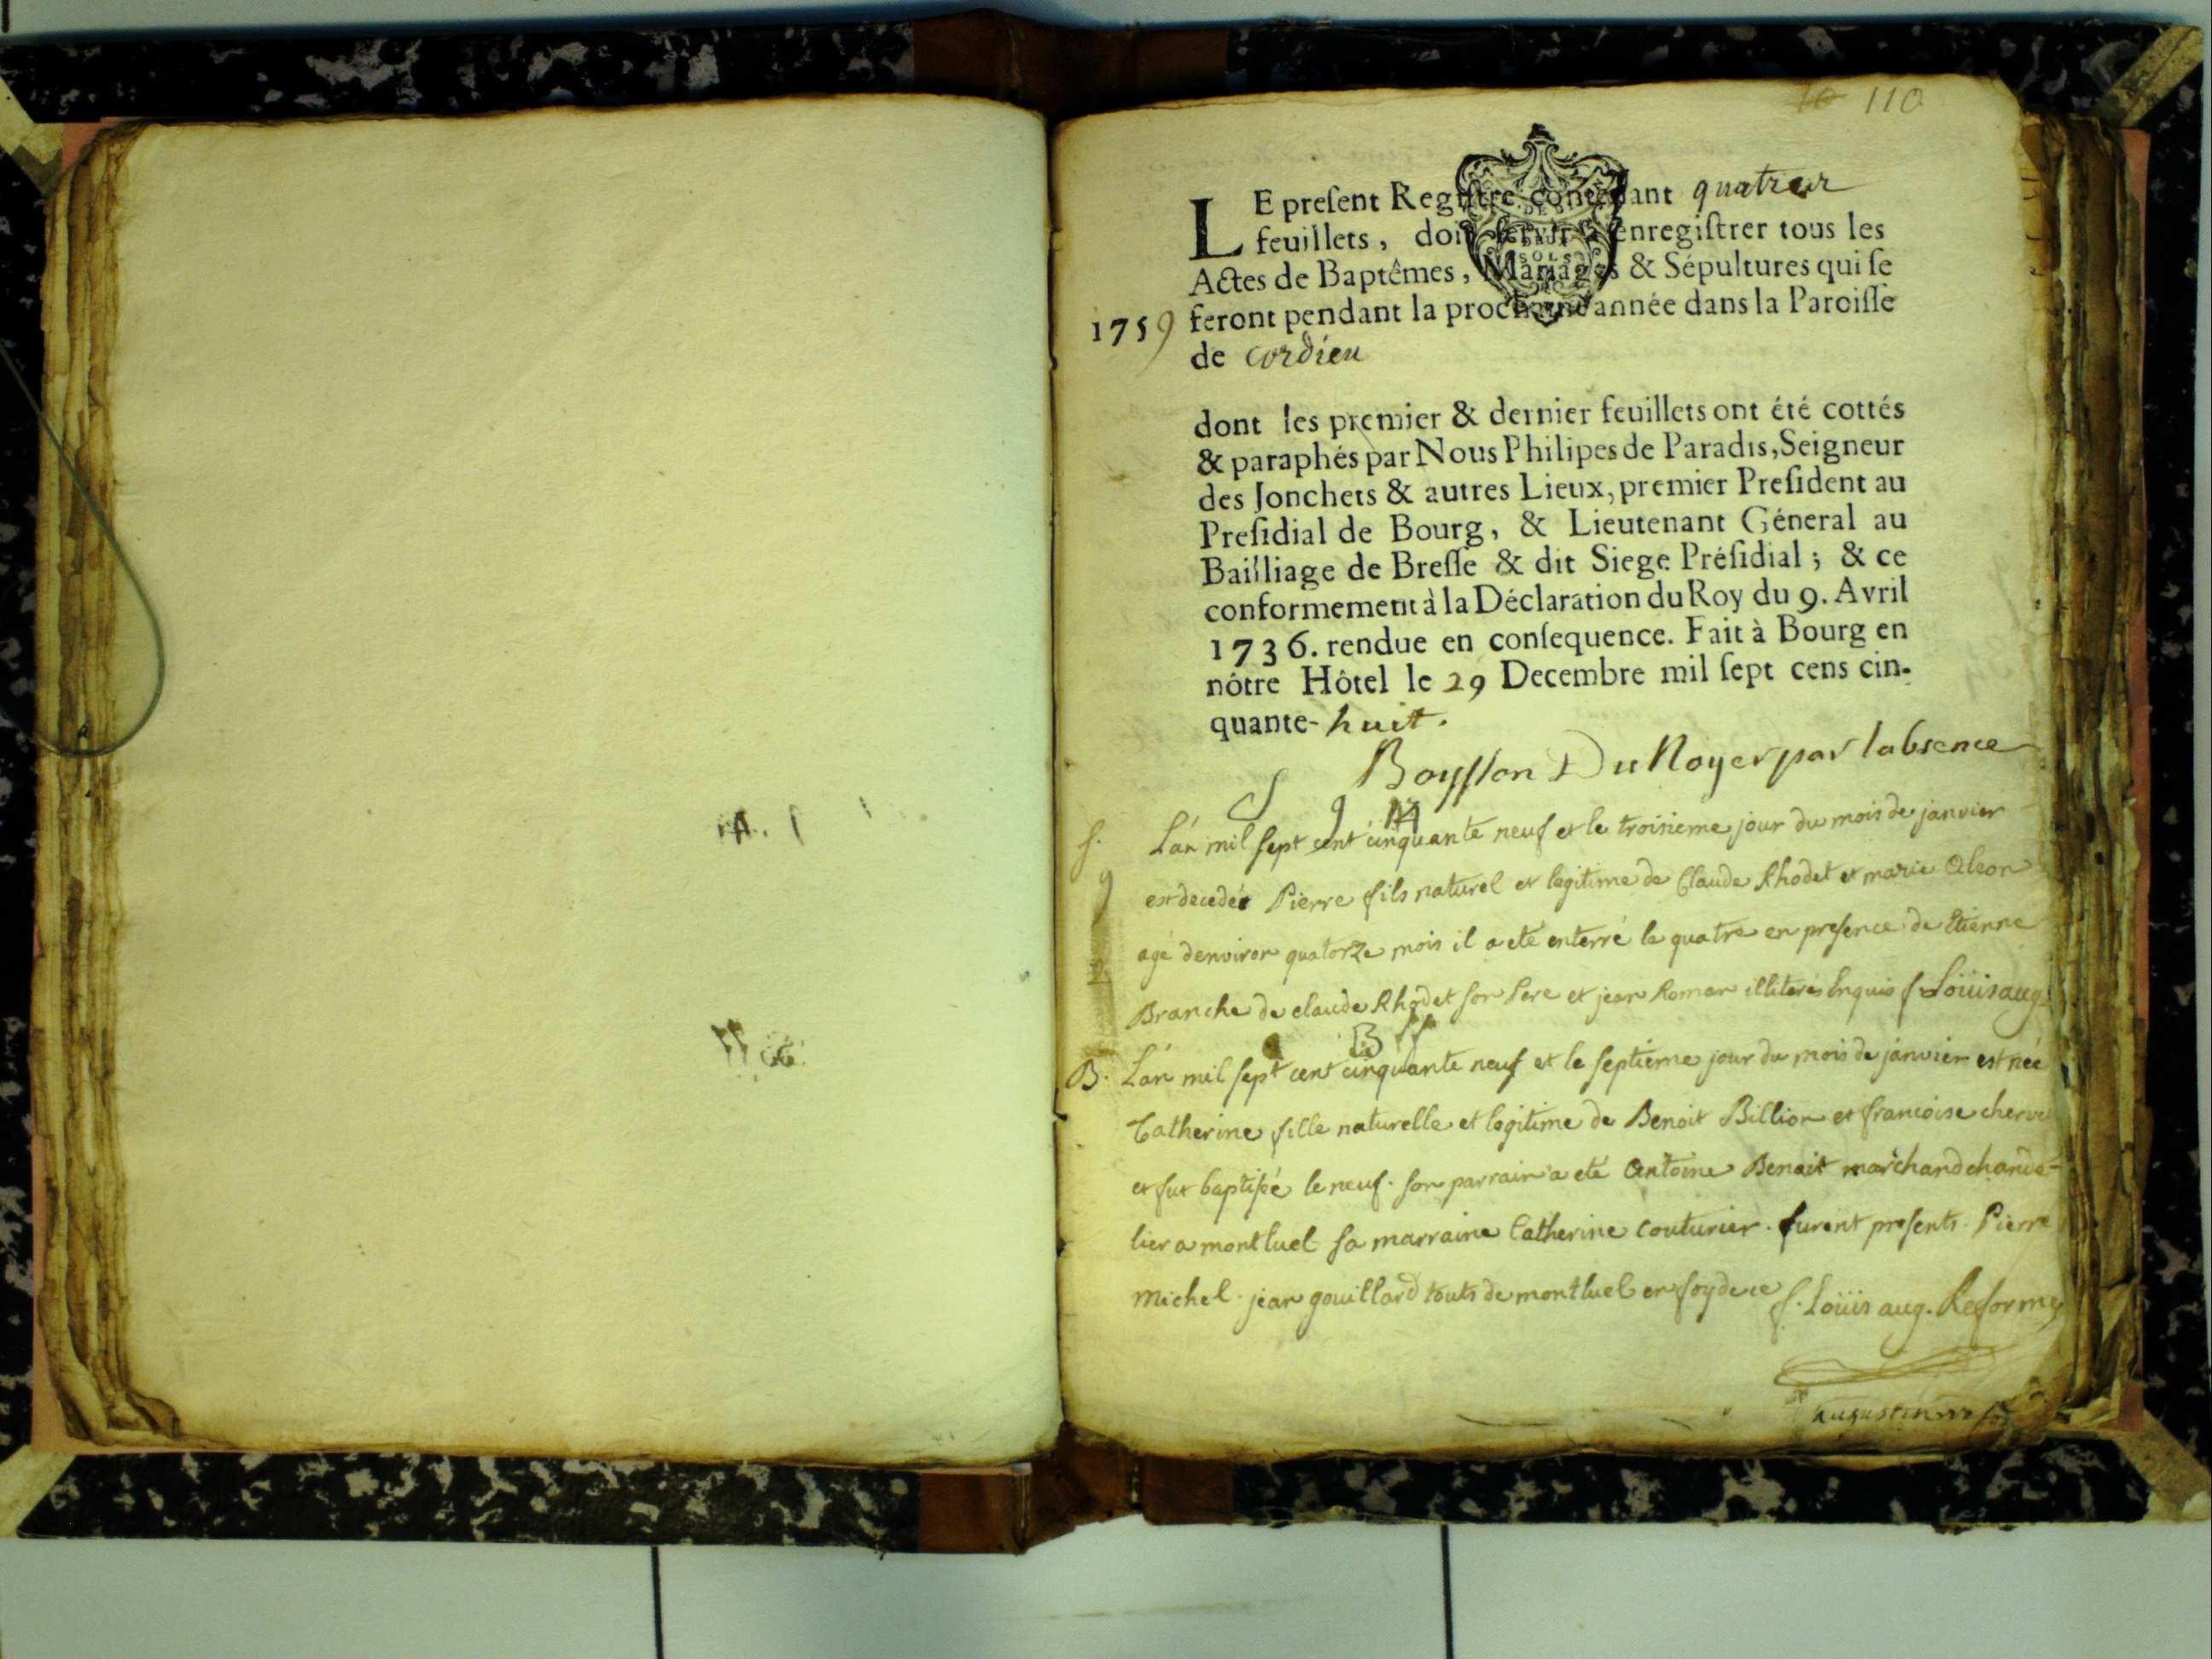 110
LE preſent Regiſtre contenant quatre
feuillets, doit ſervir à enregiſtrer tous les
Actes de Baptêmes, Mariages & Sépultures qui ſe
1759 feront pendant la prochaine année dans la Paroiſſe
de cordieu
dont les premier & dernier feuillets ont été cottés
& paraphés par Nous Philipes de Paradis, Seigneur
des Jonchets & autres Lieux, premier Preſident au
Preſidial de Bourg, & Lieutenant Géneral au
Bailliage de Breſſe & dit Siege Préſidial; & ce
conformement à la Déclaration du Roy du 9. Avril
1736. rendue en conſequence. Fait à Bourg en
nôtre Hôtel le 29 Decembre mil ſept cens cin-
quante-huit.
Boysson Du Noyer par labsence
S
S. L'an mil sept cent cinquante neuf et le troisieme jour du mois de janvier
est decedé Pierre fils naturel et legitime de Claude Rhodet et marie
agé denviron quatorze mois il a eté enterré le quatre en presence de Etienne
Branche de claude Rhodet son Pere et jean Roman illiterés Enquis f. Loüis aug.
B. L'an mil sept cent cinquante neuf et le septieme jour du mois de janvier est née
Catherine fille naturelle et legitime de Benoit Billion et francoise
et fut baptisée le neuf. son parrain a eté Antoine Benoit marchand chande-
lier a montluel sa marraine Catherine couturier. furent presents Pierre
michel. jean gouillard touts de montluel en foy de ce f. Loüis aug. Reformé
augustin